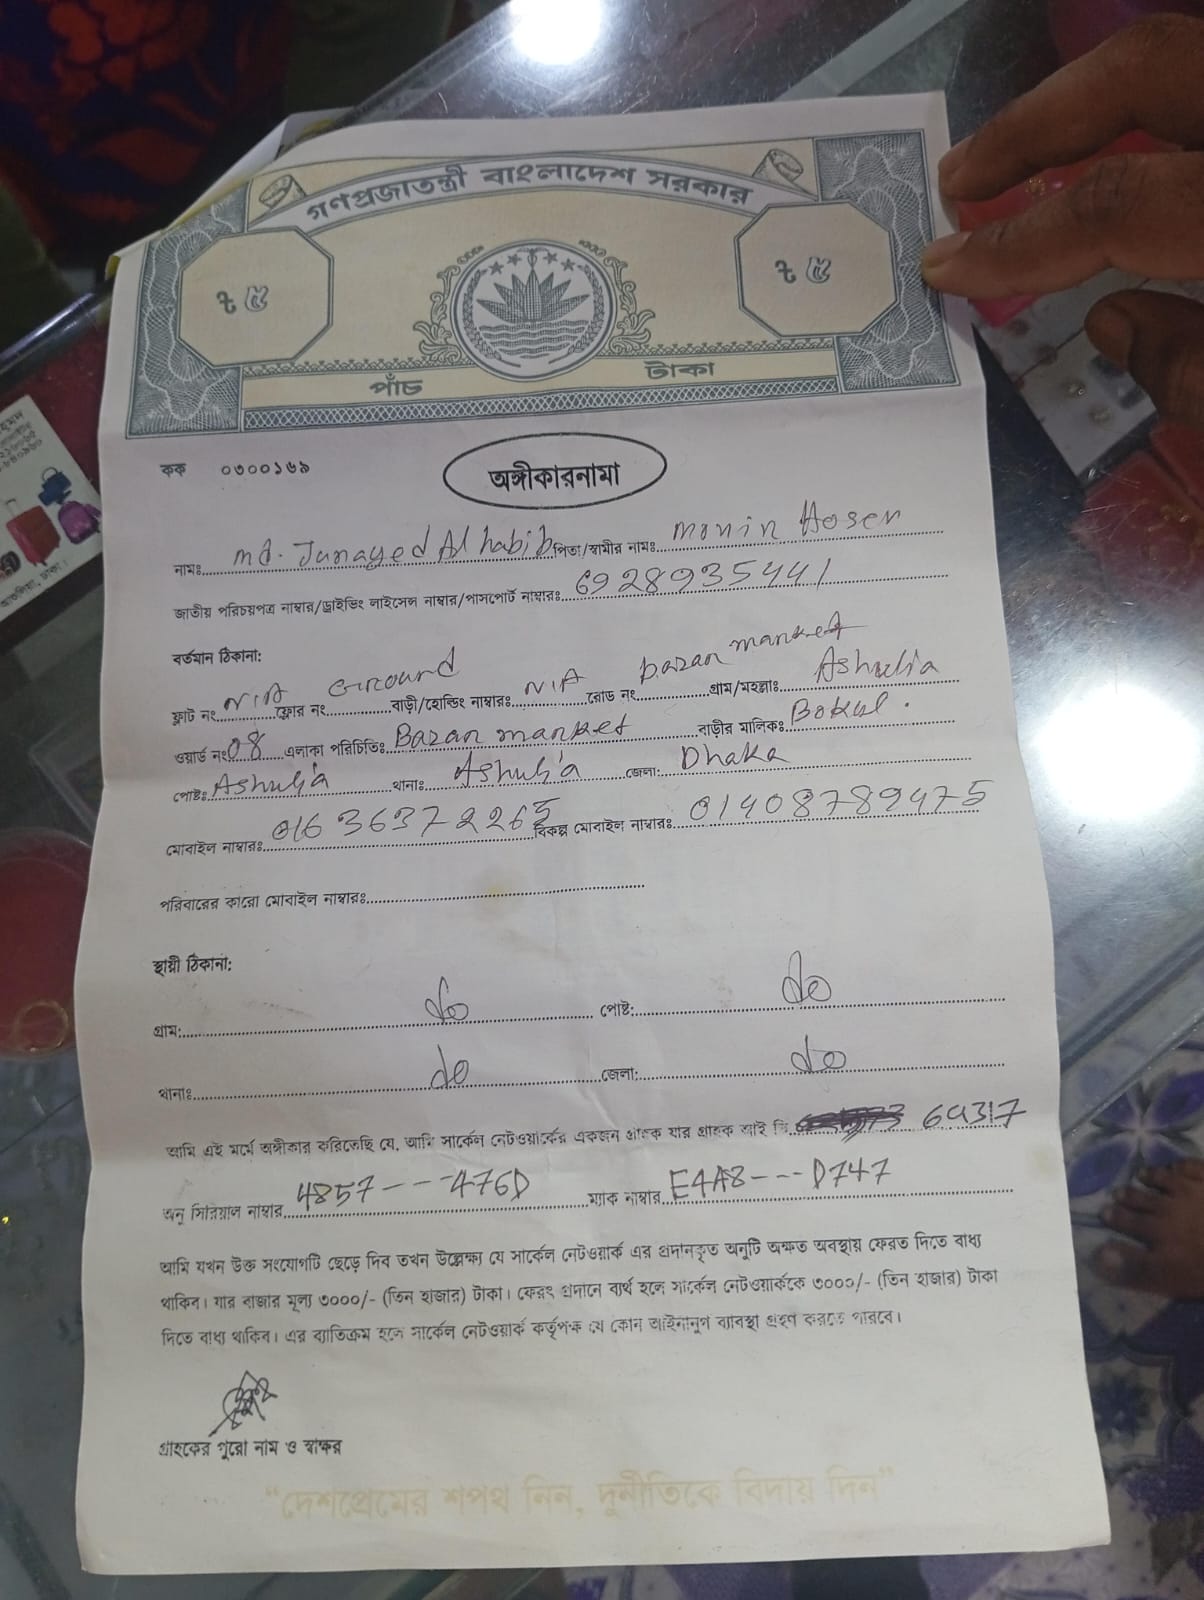 গণপ্রজাতন্ত্রী বাংলাদেশ সরকার
৳ ৫
৳ ৫
পাঁচ টাকা
কক ০৩০০১৬৯
অঙ্গীকারনামা
নামঃ Md. Junayed Al habib পিতা/স্বামীর নামঃ Monin Hosen
জাতীয় পরিচয়পত্র নাম্বার/ড্রাইভিং লাইসেন্স নাম্বার/পাসপোর্ট নাম্বারঃ 6928935441
বর্তমান ঠিকানা:
ফ্লাট নং N/A ফ্লোর নং Ground বাড়ী/হোল্ডিং নাম্বারঃ N/A রোড নং bazar market গ্রাম/মহল্লাঃ Ashulia
ওয়ার্ড নং 08 এলাকা পরিচিতিঃ Bazar market বাড়ীর মালিকঃ Bokul.
পোষ্টঃ Ashulia থানাঃ Ashulia জেলা: Dhaka
মোবাইল নাম্বারঃ 01636372265 বিকল্প মোবাইল নাম্বারঃ 01408789475
পরিবারের কারো মোবাইল নাম্বারঃ
স্থায়ী ঠিকানা:
গ্রাম: do পোষ্ট: do
থানাঃ do জেলা: do
আমি এই মর্মে অঙ্গীকার করিতেছি যে, আমি সার্কেল নেটওয়ার্কের একজন গ্রাহক যার গ্রাহক আই ডি 64317
অনু সিরিয়াল নাম্বার 4857---476D ম্যাক নাম্বার E4A8---D747
আমি যখন উক্ত সংযোগটি ছেড়ে দিব তখন উল্লেক্ষ্য যে সার্কেল নেটওয়ার্ক এর প্রদানকৃত অনুটি অক্ষত অবস্থায় ফেরত দিতে বাধ্য
থাকিব। যার বাজার মূল্য ৩০০০/- (তিন হাজার) টাকা। ফেরৎ প্রদানে ব্যর্থ হলে সার্কেল নেটওয়ার্ককে ৩০০০/- (তিন হাজার) টাকা
দিতে বাধ্য থাকিব। এর ব্যাতিক্রম হলে সার্কেল নেটওয়ার্ক কর্তৃপক্ষ যে কোন আইনানুগ ব্যাবস্থা গ্রহণ করতে পারবে।
গ্রাহকের পুরো নাম ও স্বাক্ষর
"দেশপ্রেমের শপথ নিন, দুর্নীতিকে বিদায় দিন"